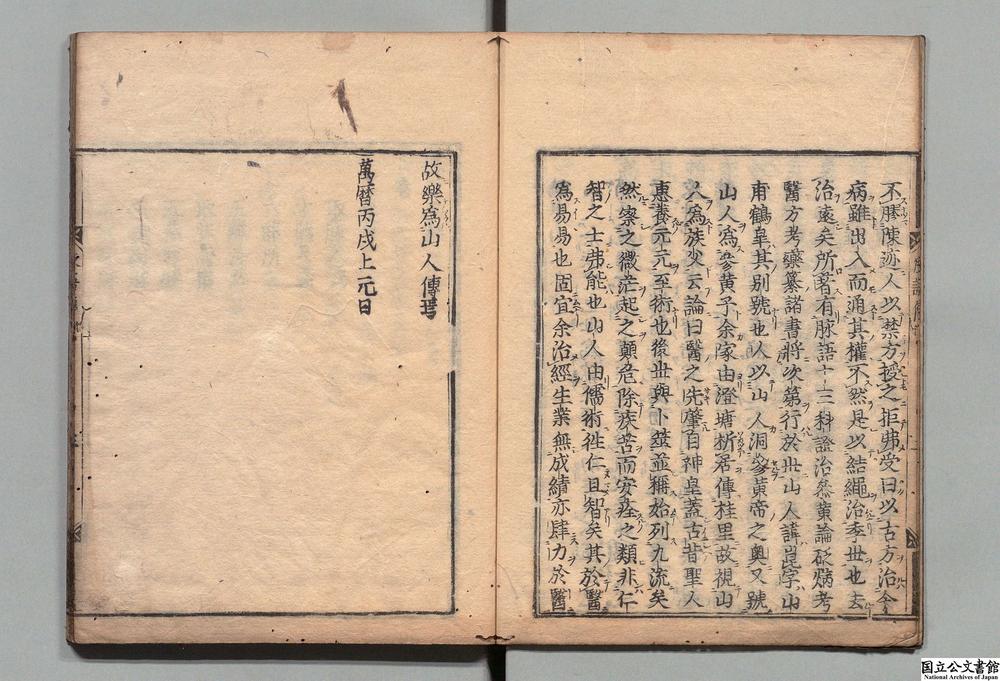 不膠陳迹人以禁方授之拒弗受曰以古方治今
病雖出入而通其權不然是以結繩治季世也去
治遠矣所著有脉語十三科證治參黃論砭焫考
醫方考藥纂諸書將次第行於世山人諱崑字山
甫鶴皐其別號也人以山人洞參黃帝之奧又號
山人為參黃子余家由澄塘析居傳桂里故視山
人為族父云論曰醫之先肇自神皇蓋古昔聖人
惠養元元至術也後世與卜筮並稱始列九流矣
然察之微茫起之顛危除疾苦而安痊之類非仁
智之士弗能也山人由儒術徃仁且智矣其於醫
為易易也固宜余治經生業無成績亦肆力於醫
故樂為山人傳焉
萬曆丙戌上元日
国立公文書館
National Archives of Japan